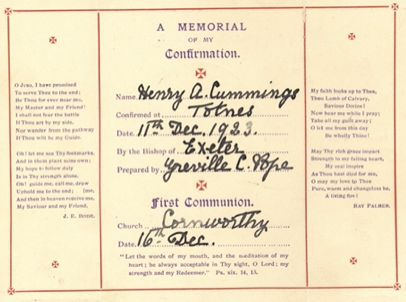 O Jesu, I have promised
To serve Thee to the end;
Be Thou for ever near me,
My Master and my Friend!
I shall not fear the battle
If Thou art by my side,
Nor wander from the pathway
If Thou wilt be my Guide.
Oh! let me see Thy footmarks,
And in them plant mine own;
My hope to follow duly
Is in Thy strength alone.
Oh! guide me, call me, draw me,
Uphold me to the end;
And then in heaven receive me,
My Saviour and my Friend.
J. E. Bode.
A MEMORIAL
OF MY
Confirmation.
Name Henry A. Cummings
Confirmed at Totnes
Date 11th Dec. 1923.
By the Bishop of Exeter
Prepared by Greville C. Pope
First Communion.
Church Cornworthy
Date 16th Dec.
"Let the words of my mouth, and the meditation of my
heart; be always acceptable in Thy sight, O Lord; my
strength and my Redeemer." Ps. xix. 14, 15.
My faith looks up to Thee,
Thou Lamb of Calvary,
Saviour Divine!
Now hear me while I pray;
Take all my guilt away;
O let me from this day
Be wholly Thine!
May Thy rich grace impart
Strength to my fainting heart,
My zeal inspire
As Thou hast died for me,
O may my love to Thee
Pure, warm and changeless be,
A living fire!
Ray Palmer.